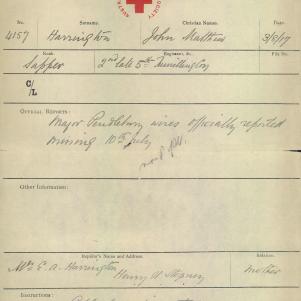 SOCIETY
No. Surname. Christian Names. Date.
4157 Harrington John Matthew 3/8/17
Rank. Regiment, &c. File No.
Sapper 2nd late 5th Tunnelling Coy
C/L
OFFICIAL REPORTS:
Major Pendlebury wires officially reported
missing 10th July
Other Information:
Inquirer's Name and Address. Relation.
Mrs E. A. Harrington mother
Henry St Stepney
Instructions: